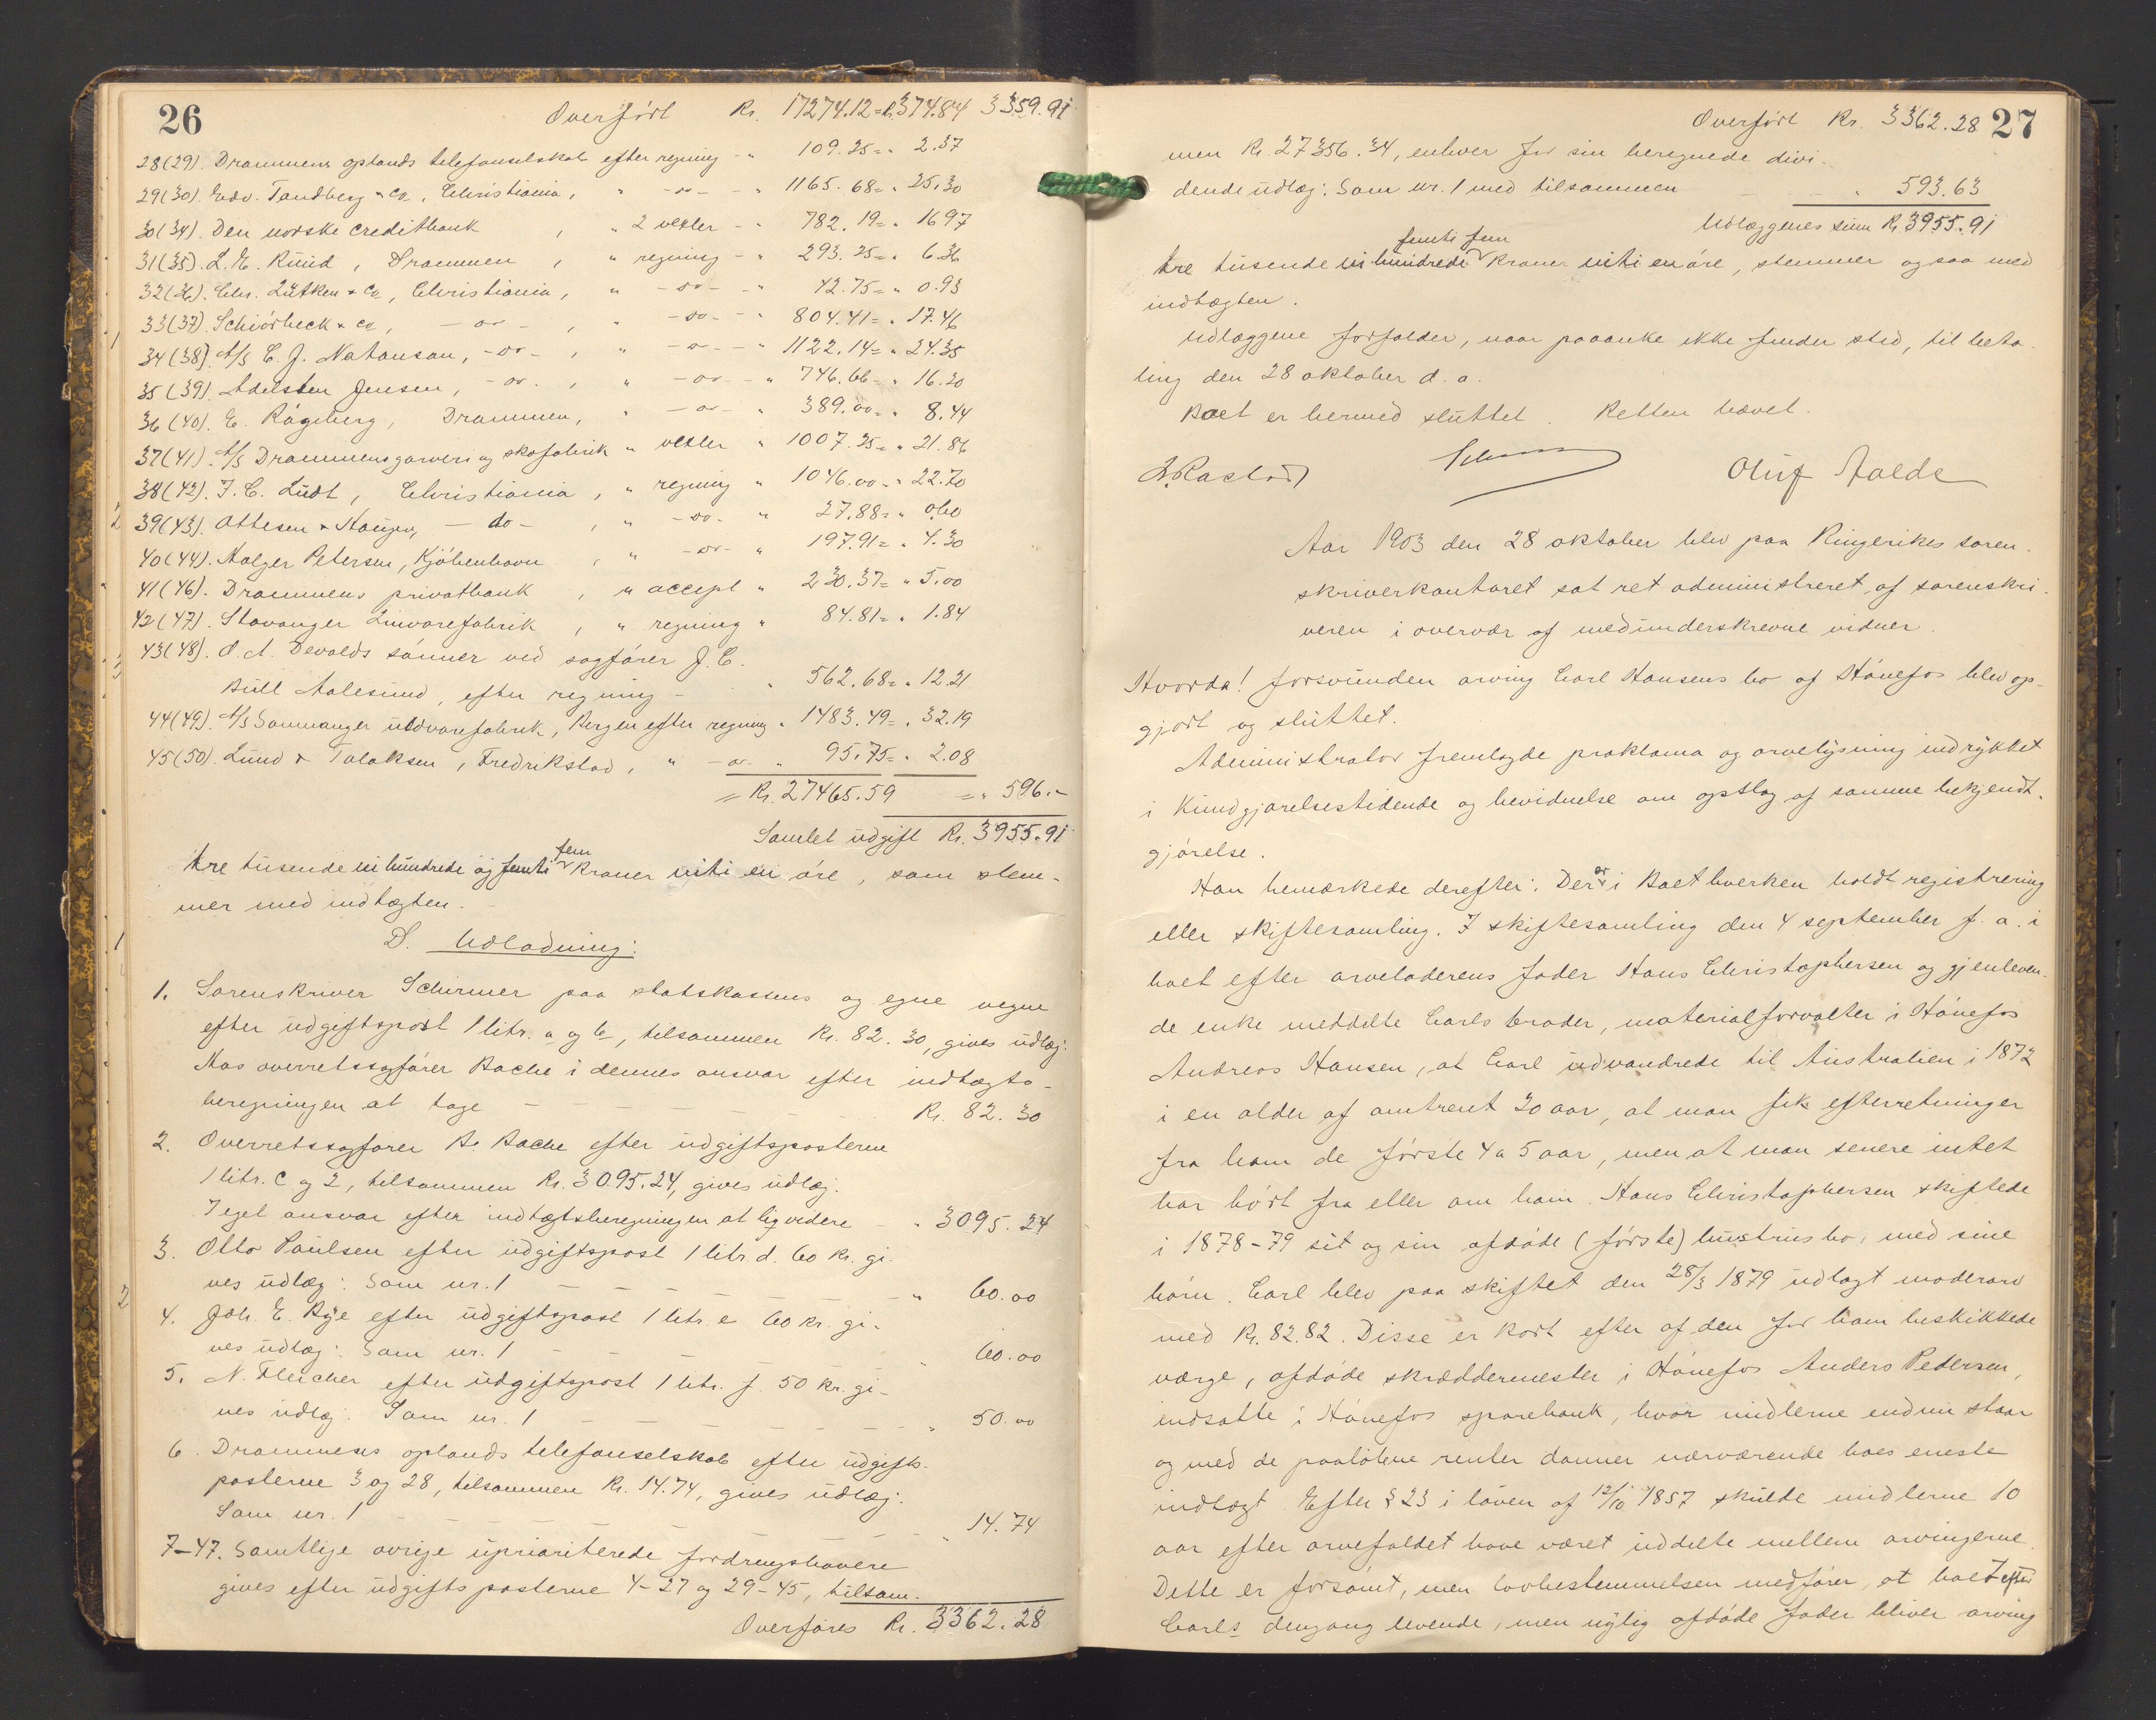 26
Overført Kr. 17274.12 = Kr. 374.84 3359.91
28(29). Drammens oplands telefonselskab efter regning - " 109.25 = " 2.37
29(30). Edv. Tandberg & Co, Christiania, " - do - - " 1165.68 = " 25.30
30(34). Den norske creditbank , " 2 vexler - " 782.19 = " 16.97
31(35). L. E. Ruud, Drammen , " regning - " 293.25 = " 6.36
32(36). Chr. Lütken & Co, Christiania, " - do - - " 42.75 = " 0.93
33(37). Schiørbeck & co, - do - , " - do - - " 804.41 = " 17.46
34(38). A/S C. J. Nathanson, - do - , " - do - - " 1122.14 = " 24.35
35(39). Adelsten Jensen, - do - , " - do - - " 746.66 = " 16.20
36(40). E. Rágeberg, Drammen, " - do - " 389.00 = " 8.44
37(41). A/S Drammens garveri og skofabrik " vexler " 1007.25 = " 21.86
38(42). J. C. Ludt, Christiania, " regning " 1046.00 = " 22.70
39(43). Ottesen & Hauger, - do - , " - do - " 27.88 = " 0.60
40(44). Holger Petersen, Kjøbenhavn , " - do - " 197.91 = " 4.30
41(46). Drammens privatbank , " accept " 230.37 = " 5.00
42(47). Stavanger Linvarefabrik , " regning " 84.81 = " 1.84
43(48). O. A. Devolds sønner ved sagfører J. C.
Bull Aalesund, efter regning - " 562.68 = " 12.21
44(49). A/S Sammanger uldvarefabrik, Bergen efter regning " 1483.49 = " 32.19
45(50). Lund & Tolaksen, Fredrikstad, " - do - " 95.75 = " 2.08
= Kr. 27465.59 = " 596.-
Samlet udgift Kr. 3955.91
fem
tre tusende ni hundrede og femti kroner niti en øre, som stem-
mer med indtægten.
D. Udlodning:
1. Sorenskriver Schirmer paa statskassens og egne vegne
efter udgiftspost 1 litr. a og b, tilsammen Kr. 82.30, gives udlæg:
Hos overretssagfører Bache i dennes ansvar efter indtægts-
beregningen at tage - - - Kr. 82.30
2. Overretssagfører A. Bache efter udgiftsposterne
1 litr. c og 2, tilsammen Kr. 3095.24, gives udlæg:
I eget ansvar efter indtægtsberegningen at liqvidere - " 3095.24
3. Otto Paulsen efter udgiftspost 1 litr. d. 60 kr. gi-
ves udlæg: Som nr. 1 - - - " 60.00
4. Joh. E. Rye efter udgiftspost 1 litr. e 60 kr. gi-
ves udlæg: Som nr. 1 - - - " 60.00
5. N. Fleicher efter udgiftspost 1 litr. f. 50 kr. gi-
ves udlæg: Som nr. 1 - - - " 50.00
6. Drammens oplands telefonselskab efter udgifts-
posterne 3 og 28, tilsammen Kr. 14.74, gives udlæg:
Som nr. 1 - - - " 14.74
7-47. Samtlige øvrige uprioriterede fordringshavere
gives efter udgiftsposterne 4-27 og 29-45, tilsam-
Overføres Kr. 3362.28
Overført Kr. 3362.28 27
men Kr. 27356.34, enhver for sin beregnede divi-
dende udlæg: Som nr. 1 med tilsammen " 593.63
Udlæggenes sum Kr. 3955.91
femti fem
tre tusende ni hundrede kroner niti en øre, stemmer ogsaa med
indtægten.
Udlæggene forfalder, naar paaanke ikke finder sted, til beta-
ling den 28 oktober d. a.
Boet er hermed sluttet. Retten hævet.
Schirmer Oluf Aalde
Aar 1903 den 28 oktober blev paa Ringerikes soren-
skriverkontoret sat ret administreret af sorenskri-
veren i overvær af medunderskrevne vidner.
Hvorda! forsvunden arving Carl Hansens bo af Hønefos blev op-
gjort og sluttet.
Administrator fremlagde proklama og arvelysning indrykket
i Kundgjørelsestidende og bevidnelse om opslag af samme bekjendt-
gjørelse.
Han bemærkede derefter: Der er i Boet hverken holdt registrering
eller skiftesamling. I skiftesamling den 4 september f. a. i
boet efter arveladerens fader Hans Christophersen og gjenleven-
de enke meddelte Carls broder, materialforvalter i Hønefos
Andreas Hansen, at Carl udvandrede til Australien i 1872
i en alder af omtrent 20 aar, at man fik efterretninger
fra ham de første 4 a 5 aar, men at man senere intet
har hørt fra eller om ham. Hans Christophersen skiftede
i 1878-79 sit og sin afdøde (første) hustrus bo, med sine
børn. Carl blev paa skiftet den 28/3 1879 udlagt modrearv
med Kr. 82.82. Disse er kort efter af den for ham beskikkede
værge, afdøde skræddermester i Hønefos Anders Pedersen,
indsatte i Hønefos sparebank, hvor midlerne endnu staar
og med de paaløbne renter danner nærværende boes eneste
indtægt. Efter § 23 i loven af 12/10 1857 skulde midlerne 10
aar efter arvefaldet have været uddelte mellem arvingerne.
Dette er forsømt, men lovbestemmelsen medfører, at boet efter
Carls dengang levende, men nylig afdøde fader bliver arving